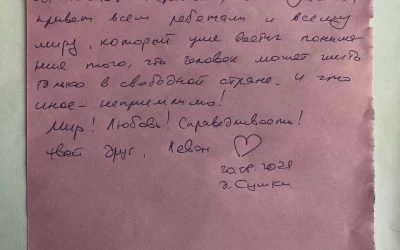 привет всем ребятам и всему
миру, который уже достиг понима-
ние того, что человек может жить
только в свободной стране. И что
иное - неприемлимо!
Мир! Любовь! Справедливость!
твой друг, Леван ♡
20.08.2021
д. Сушки